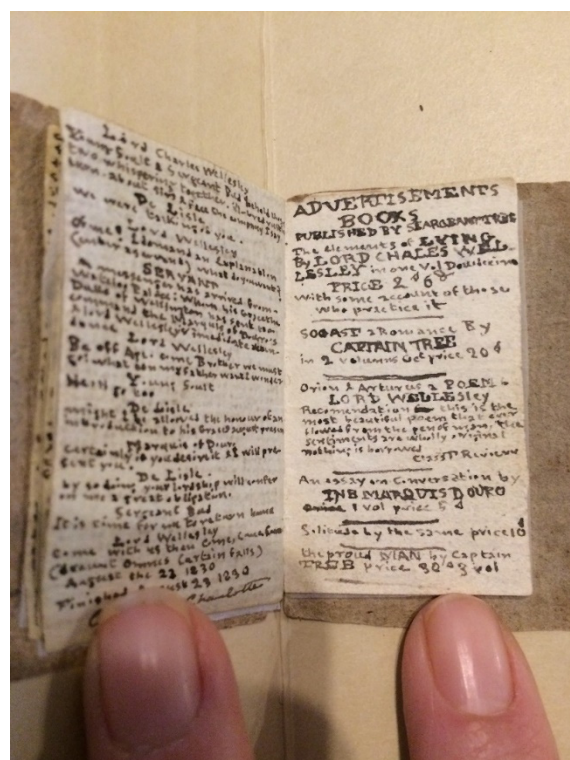 Lord Charles Wellesley
Young Soult & Sergeant Bud behold those
two whispering together.
De Lisle
we were talking of you.
of me Lord Wellesley
I demand an Explanation
SERVANT
A messenger has arrived from
Waterloo Palace: Whom his Grace the
Duke of Wellington has sent to
command the Marquis of Douro
& lord Wellesleys immediate atten-
dance
Lord Wellesley
Be off Age. come Brother we must
go! what can my father want I wonder
Young Soult
De Lisle
might I be allowed the honour of an
introduction to his Grace's august presen
Marquis of Douro
Certainly if you desire it I will pre-
sent you.
De Lisle.
by so doing your Lordship will confer
on me a great obligation.
Sergeant Bud
It is time for me to return home
Lord Wellesley
come with us then
(exeunt Omnes Curtain falls)
August the 23 1830
Finished August 23 1830
Charlotte
ADVERTISEMENTS
BOOKS
PUBLISHED BY SEARGEANT TREE
The elements of LYING
By LORD CHALES WEL-
LESLEY in one vol Doudicimo
PRICE 2s 6d
with some account of those
who practice it
a Romance By
CAPTAIN TREE
in 2 volumns Oct price 20s
Orion & Arturus a POEM by
LORD WELLESLEY
Recomendation this is the
most beautiful poem that ever
flowed from the pen of man. The
sentiments are wholly original
nothing is borrowed
Review
An essay on Conversation by
THE MARQUIS DOURO
1 vol price 5s
Solitude by the same price
the proud MAN by Captain
TREE price 30s 3 vol